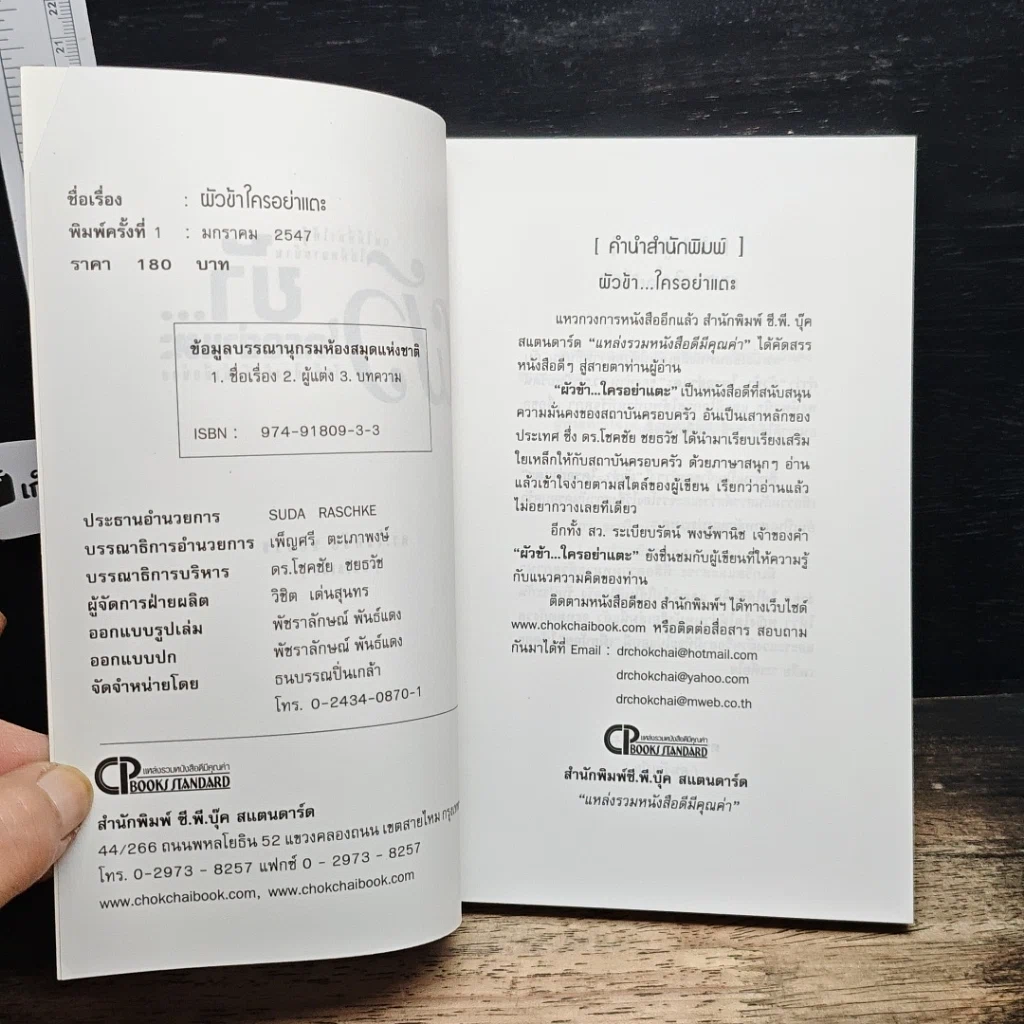 22
21
ชื่อเรื่อง : ผัวข้าใครอย่าแตะ
พิมพ์ครั้งที่ 1 : มกราคม 2547
ราคา 180 บาท
ข้อมูลบรรณานุกรมห้องสมุดแห่งชาติ
1. ชื่อเรื่อง 2. ผู้แต่ง 3. บทความ
ISBN : 974-91809-3-3
ประธานอำนวยการ SUDA RASCHKE
บรรณาธิการอำนวยการ เพ็ญศรี ตะเภาพงษ์
บรรณาธิการบริหาร ดร.โชคชัย ชยธวัช
ผู้จัดการฝ่ายผลิต วิชิต เด่นสุนทร
ออกแบบรูปเล่ม พัชราลักษณ์ พันธ์แดง
ออกแบบปก พัชราลักษณ์ พันธ์แดง
จัดจำหน่ายโดย ธนบรรณปิ่นเกล้า
โทร. 0-2434-0870-1
CP แหล่งรวมหนังสือดีมีคุณค่า
BOOKS STANDARD
สำนักพิมพ์ ซี.พี.บุ๊ค สแตนดาร์ด
44/266 ถนนพหลโยธิน 52 แขวงคลองถนน เขตสายไหม กรุงเทพ
โทร. 0-2973 - 8257 แฟกซ์ 0 - 2973 - 8257
www.chokchaibook.com, www.chokchaibook.com
[ คำนำสำนักพิมพ์ ]
ผัวข้า...ใครอย่าแตะ
แหวกวงการหนังสืออีกแล้ว สำนักพิมพ์ ซี.พี. บุ๊ค
สแตนดาร์ด “แหล่งรวมหนังสือดีมีคุณค่า” ได้คัดสรร
หนังสือดีๆ สู่สายตาท่านผู้อ่าน
“ผัวข้า...ใครอย่าแตะ” เป็นหนังสือดีที่สนับสนุน
ความมั่นคงของสถาบันครอบครัว อันเป็นเสาหลักของ
ประเทศ ซึ่ง ดร.โชคชัย ชยธวัช ได้นำมาเรียบเรียงเสริม
ใยเหล็กให้กับสถาบันครอบครัว ด้วยภาษาสนุกๆ อ่าน
แล้วเข้าใจง่ายตามสไตล์ของผู้เขียน เรียกว่าอ่านแล้ว
ไม่อยากวางเลยทีเดียว
อีกทั้ง สว. ระเบียบรัตน์ พงษ์พานิช เจ้าของคำ
“ผัวข้า...ใครอย่าแตะ” ยังชื่นชมกับผู้เขียนที่ให้ความรู้
กับแนวความคิดของท่าน
ติดตามหนังสือดีของ สำนักพิมพ์ฯ ได้ทางเว็บไซด์
www.chokchaibook.com หรือติดต่อสื่อสาร สอบถาม
กันมาได้ที่ Email : drchokchai@hotmail.com
drchokchai@yahoo.com
drchokchai@mweb.co.th
CP แหล่งรวมหนังสือดีมีคุณค่า
BOOKS STANDARD
สำนักพิมพ์ซี.พี.บุ๊ค สแตนดาร์ด
“แหล่งรวมหนังสือดีมีคุณค่า”